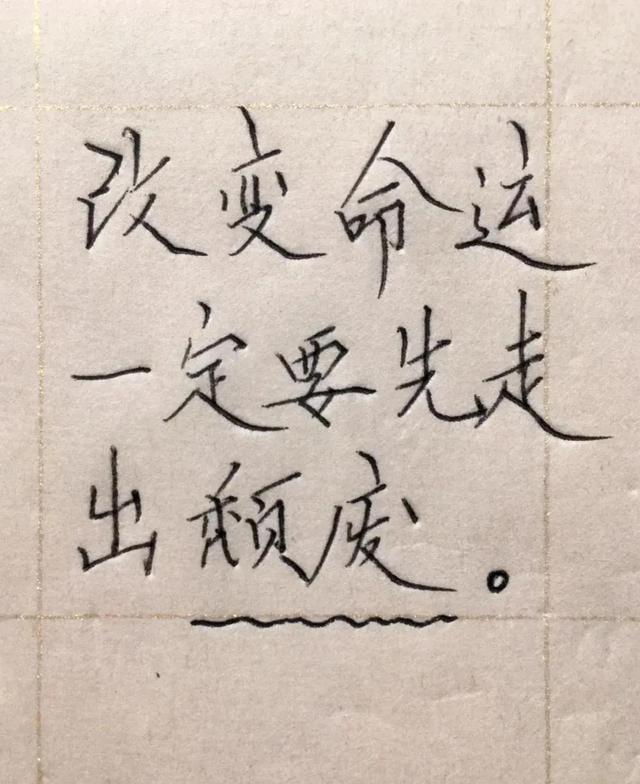 改变命运
一定要先走
出颓废。